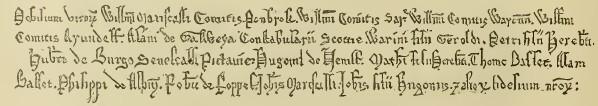 Nobilium virorū Willmi Marescalli Comitis Penbrok. Willmi Comitis Sar̃ Willmi Comitis Warenn̄. Willmi
Comitis Arundell. Alani de Galweya Constabularii Scocie Warini filii Geroldi. Petri filii Hereberti.
Huberti de Burgo Senescalli Pictavie Hugonis de Nevill. Mathi filii Hereberti. Thome Basset. Alani
Basset. Philippi de Albiny. Roberti de Roppel. Johis Marescalli Johis filii Hugonis. et alioꝝ fidelium nroꝝ: